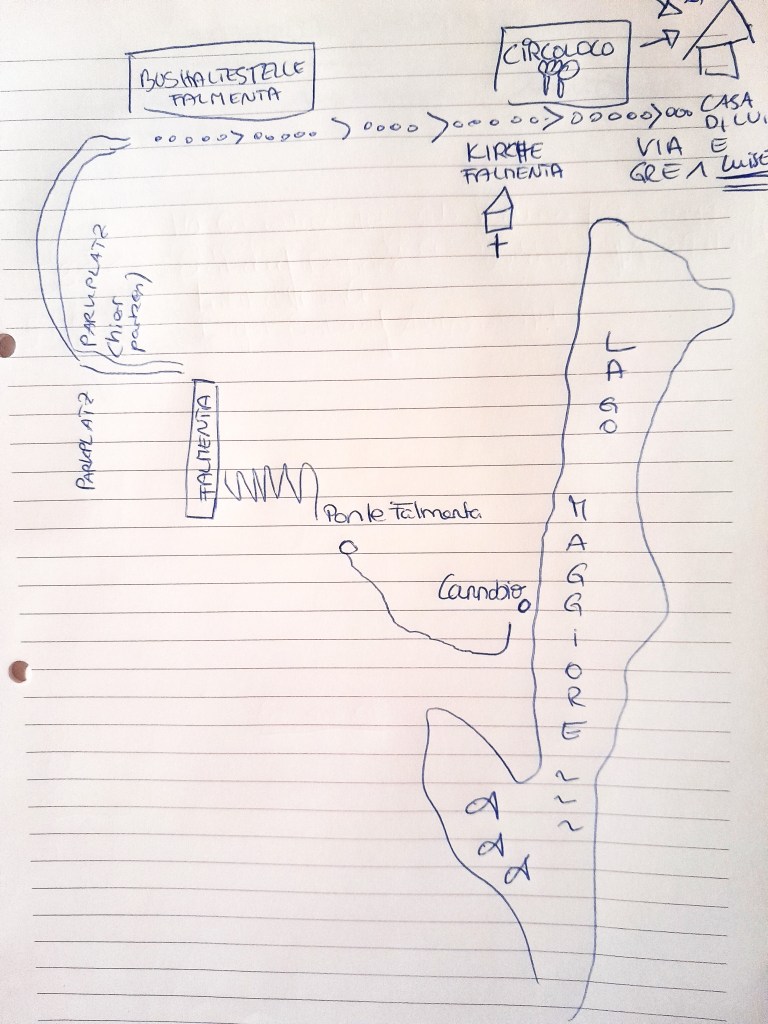 BUSHALTESTELLE
FALMENTA
CIRCOLOCO
CASA
DI LUI
E
Luise
VIA
GRE 1
KIRCHE
FALMENTA
PARKPLATZ
(hier
parken)
PARKPLATZ
FALMENTA
Ponte Falmenta
Cannobio
LAGO
MAGGiORE